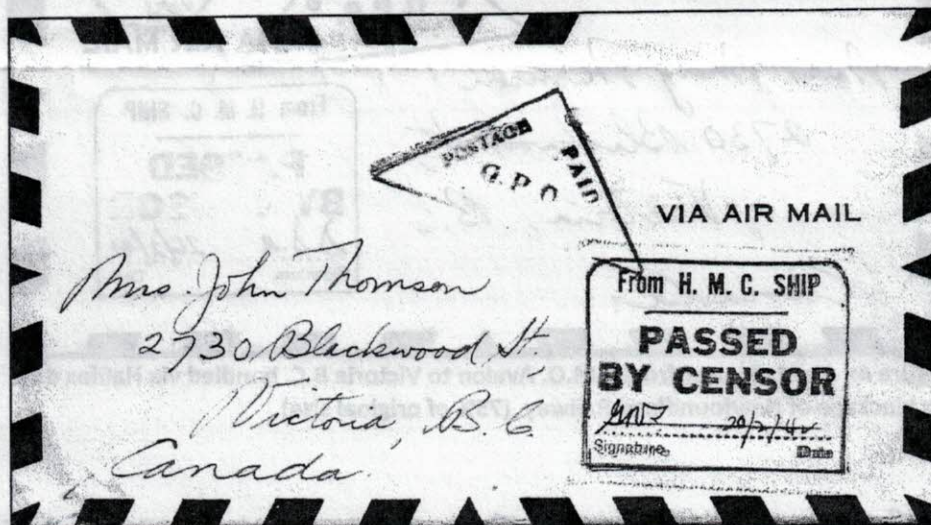 POSTAGE
PAID
G.P.O
VIA AIR MAIL
Mrs. John Thomson
2730 Blackwood St
Victoria, B.C.
Canada
From H. M. C. SHIP
PASSED
BY CENSOR
29/2/42
Signature Date